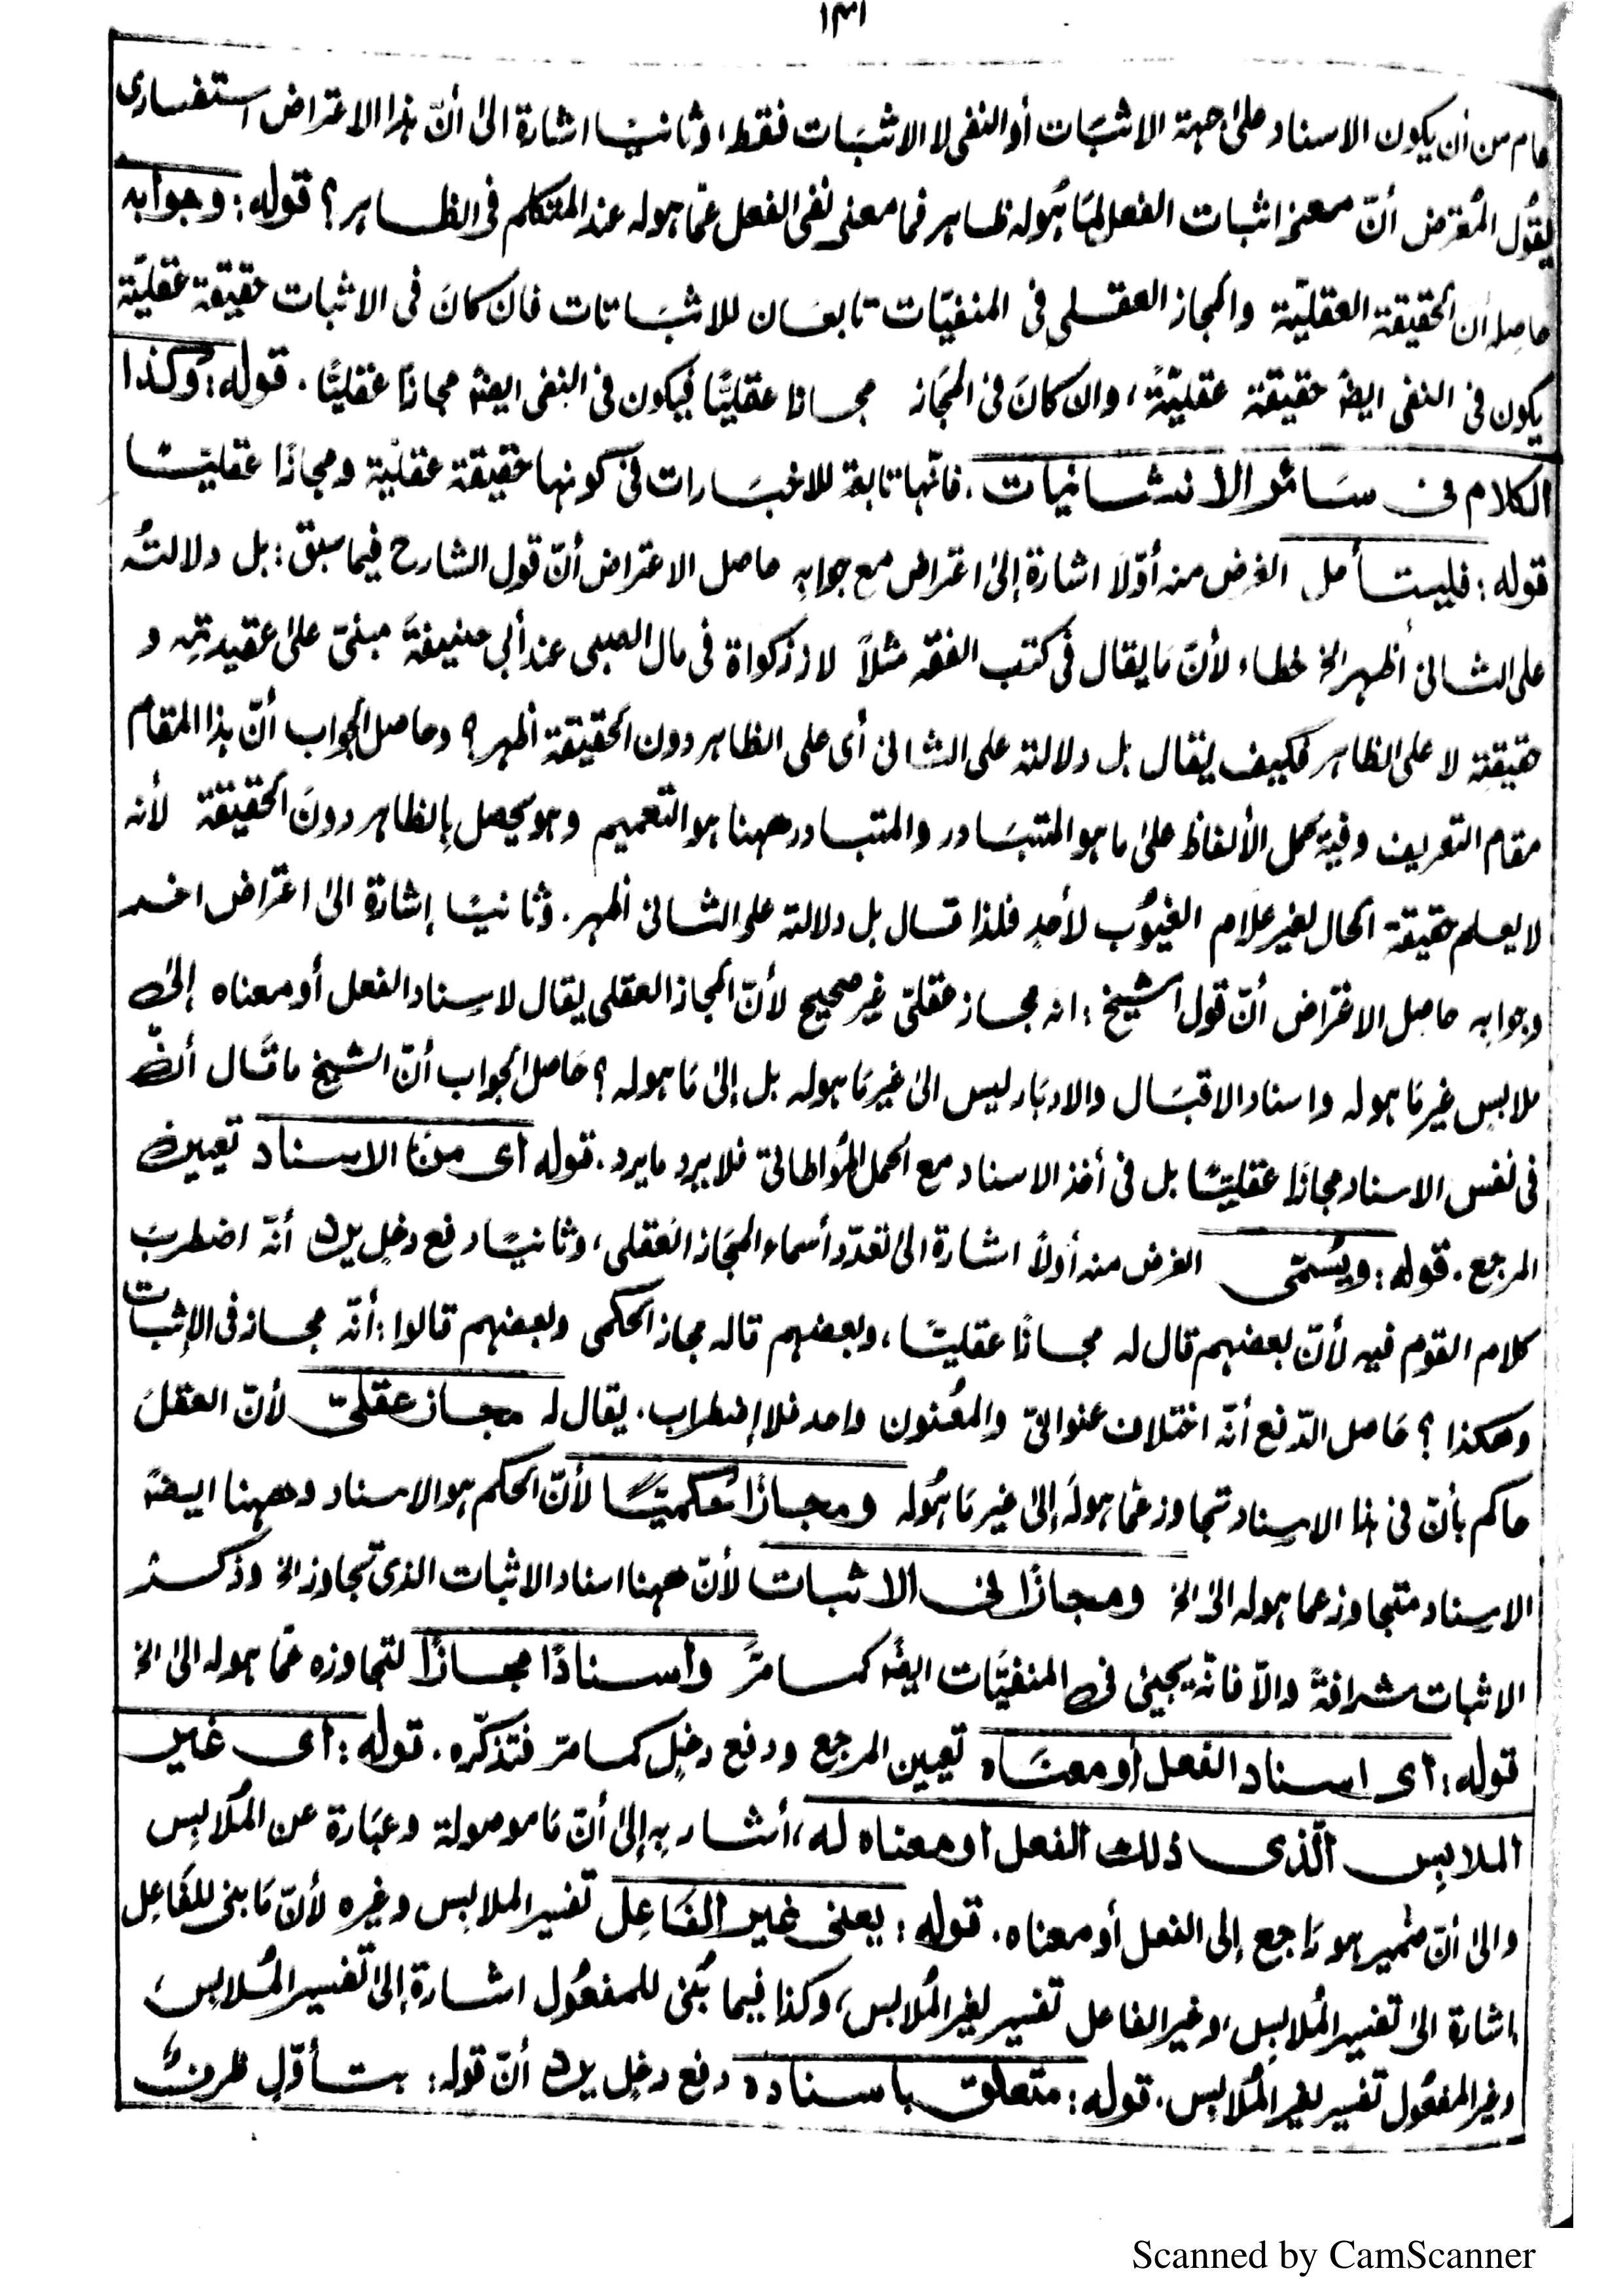 ١٣١
عام من أن يكون الاسناد على جهة الاثبات أو النفى لا الاثبات فقط، وثانيًا اشارة الى أنّ هذا الاعتراض استفسارى
يقول المُعترض أنّ معنى اثبات الفعل لما هُوله ظاهر فما معنى نفى الفعل عمّا هوله عند المتكلم فى الظاهر؟ قوله: وجوابه
حاصله أن الحقيقة العقليّة والمجاز العقلى فى المنفيّات تابعان للاثباتات فان كانَ فى الاثبات حقيقة عقليّة
يكون فى النفى ايضًا حقيقة عقليّةً، وان كانَ فى المجَاز مجازا عقليًّا فيكون فى النفى ايضًا مجازًا عقليًّا. قوله: وكذا
الكلام فى سَائر الانشائيات، فانّها تابعة للاخبارات فى كونها حقيقة عقليّة ومجازًا عقليًّا
قوله: فليتأمل الغرض منه أوّلًا اشارة إلى اعتراض مع جوابه حاصل الاعتراض أنّ قول الشارح فيما سبق: بل دلالتُه
على الثانى أظهر الخ خطاء لأنّ مَا يقال فى كتب الفقه مثلاً لا زكواة فى مال الصبى عند أبى حنيفةَ مبنىّ على عقيدته و
حقيقته لا على الظاهر فكيف يقال بل دلالته على الثانى أى على الظاهر دون الحقيقة أظهر؟ وحاصل الجواب أنّ هذا المقام
مقام التعريف وفيه تحمل الألفاظ على ما هو المتبَادر والمتبادر ههنا هو التعميم وهو يحصل بِالظاهر دونَ الحقيقة لأنه
لا يعلم حقيقة الحال لغير علام الغيُوب لأحدٍ فلذا قال بل دلالته على الثانى أظهر. وثانيًا إشارة الى اعتراض اخر
وجوابه حاصل الاعتراض أنّ قول الشيخ: انه مجاز عقلىّ غير صحيح لأنّ المجاز العقلى يقال لاسناد الفعل أو معناه إلى
ملابس غير مَا هوله واسناد الاقبَال والادبَار ليس الى غير مَا هوله بل إلى مَا هوله؟ حَاصل الجواب أنّ الشيخ ما قال أنّ
فى نفس الاسناد مجازًا عقليًّا بل فى أخذ الاسناد مع الحمل المُواطاتى فلا يرد ما يرد. قوله أى منَ الاسناد تعيين
المرجع. قوله: ويُسمّى الغرض منه أولاً اشارة الى تعدّد أسماء المجَاز العَقلى، وثانيًا دفع دخلٍ يرد أنّه اضطربَ
كلام القوم فيه لأنّ بعضهم قال له مجازًا عقليًا، وبعضهم قاله مجاز الحكمى وبعضهم قالوا: أنّه مجاز فى الإثبات
وهكذا؟ حَاصل الدّفع أنّه اختلاف عنوانىّ والمُعنون واحد فلا إضطراب. يقال له مجاز عقلىّ لأنّ العقلَ
حاكم بأنّ فى هذا الاسناد تجاوز عمّا هولهَ إلى غير مَا هُوله ومجازًا حُكميًّا لأنّ الحكم هو الاسناد وههنا ايضًا
الاسناد متجاوز عما هوله الى الخ ومجازًا فى الاثبات لأنّ ههنا اسناد الاثبات الذى تجاوز الخ وذكر
الاثبات شرافةً والاّ فانّه يجيئ فى المنفيَّات ايضًا كما مرّ وأسنادًا مجازًا لتجاوزه عمّا هوله الى الخ
قوله: أى اسناد الفعل أو معنَاه تعيين المرجع ودفع دخلٍ كما مرّ فتذكّره. قوله: أى غير
الملابِس الّذى ذلك الفعل او معناه له، أشار بِه إلى أنّ مَا موصولة وعبَارة عن المُلابِس
والى أنّ ضمير هو رَاجع إلى الفعل أو معناه. قوله: يعنى غير الفَاعِل تفسير الملابِس وغيره لأنّ مَا بنى للفَاعِل
اشارة الى تفسير المُلابِس، وغير الفاعل تفسير لغير المُلابس، وكذا فيما بُنى للمفعُول اشارة إلى تفسير المُلابس
وغير المفعُول تفسير لغير المُلابِس. قوله: متعلق باسناده دفع دخلٍ يرد أنّ قوله: بتأوّلٍ ظرف
Scanned by CamScanner